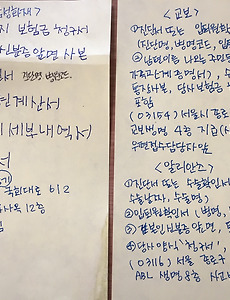 성화재>
지 보험금 청구서
신분증 앞면 사본
진단명
단계산서
비세부내역서
서
국회대로 612
12층
<교보>
① 진단서 또는 입퇴원확인
(진단명, 병명코드, 입퇴원
가족관계증명서),
통장사본, 당사 보험금
포함
(03154) 서울시 종로
교보생명 4층 지급(서
우편접수담당자앞
<알리안츠>
① 진단서 또는 수술확인서
수술날짜, 수술명)
② 입퇴원확인서 (병명,
③ 신분증 앞면,
④ 당사 양식 "청구서",
(03116) 서울 종로구
ABL 생명 8층 사고보